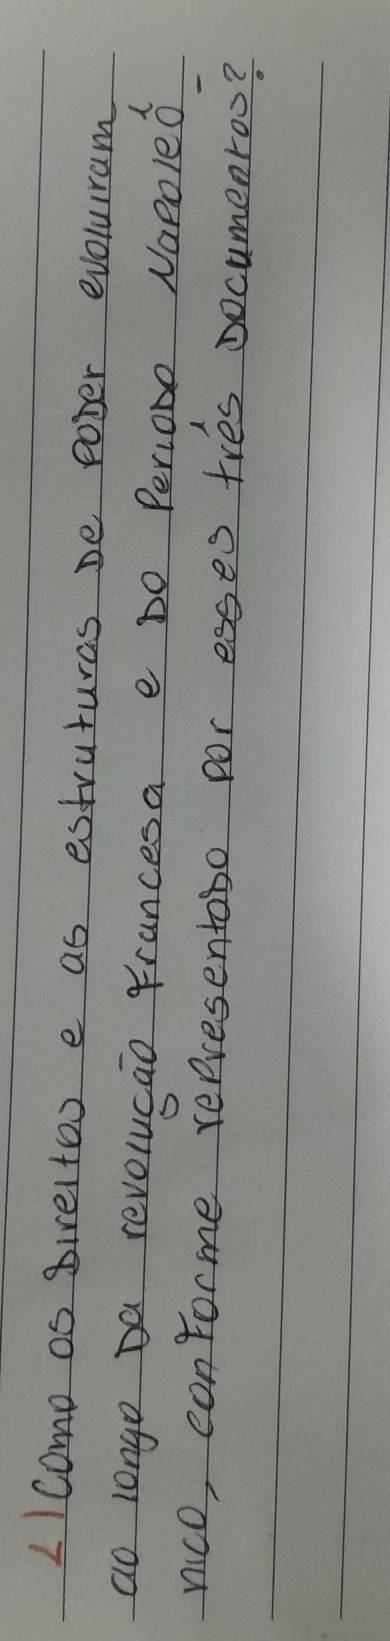 2) Como os Direitos e as estruturas De PoDer evoluiram
ao longo Da revolução Francesa e Do PerioDo Napoleô-
nico, conforme rePresentaDo por esses três Documentos?